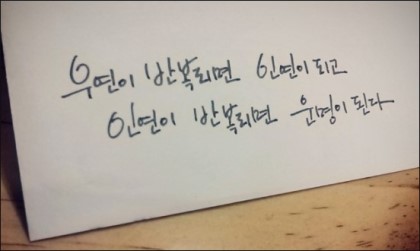 우연이 반복되면 인연이 되고
인연이 반복되면 운명이 된다